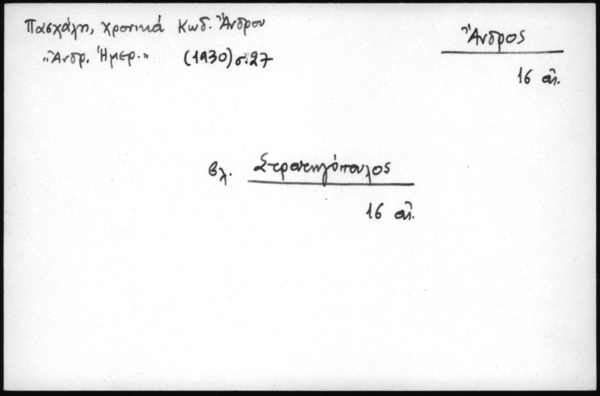 Πασχάλη, Χρονικά Κωδ. Ἄνδρου
„Ἀνδρ. Ἡμερ.” (1930) σ. 27
Ἄνδρος
16 αἰ.
βλ. Στρατηγόπουλος
16 αἰ.